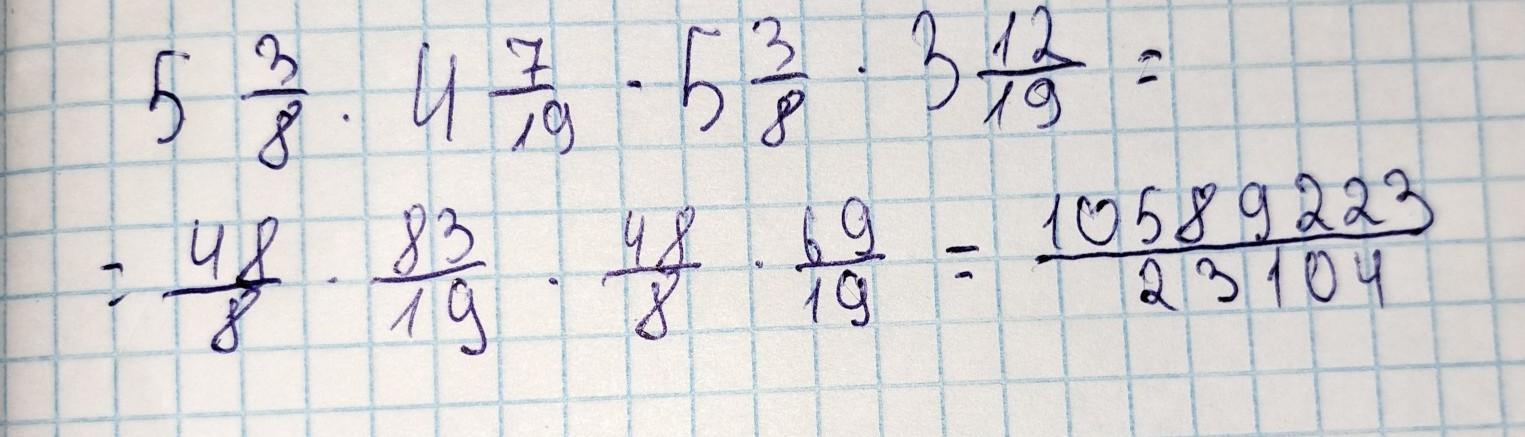 5 3/8 · 4 7/19 - 5 3/8 · 3 12/19 =
= 48/8 · 83/19 · 48/8 · 69/19 = 10589223/23104